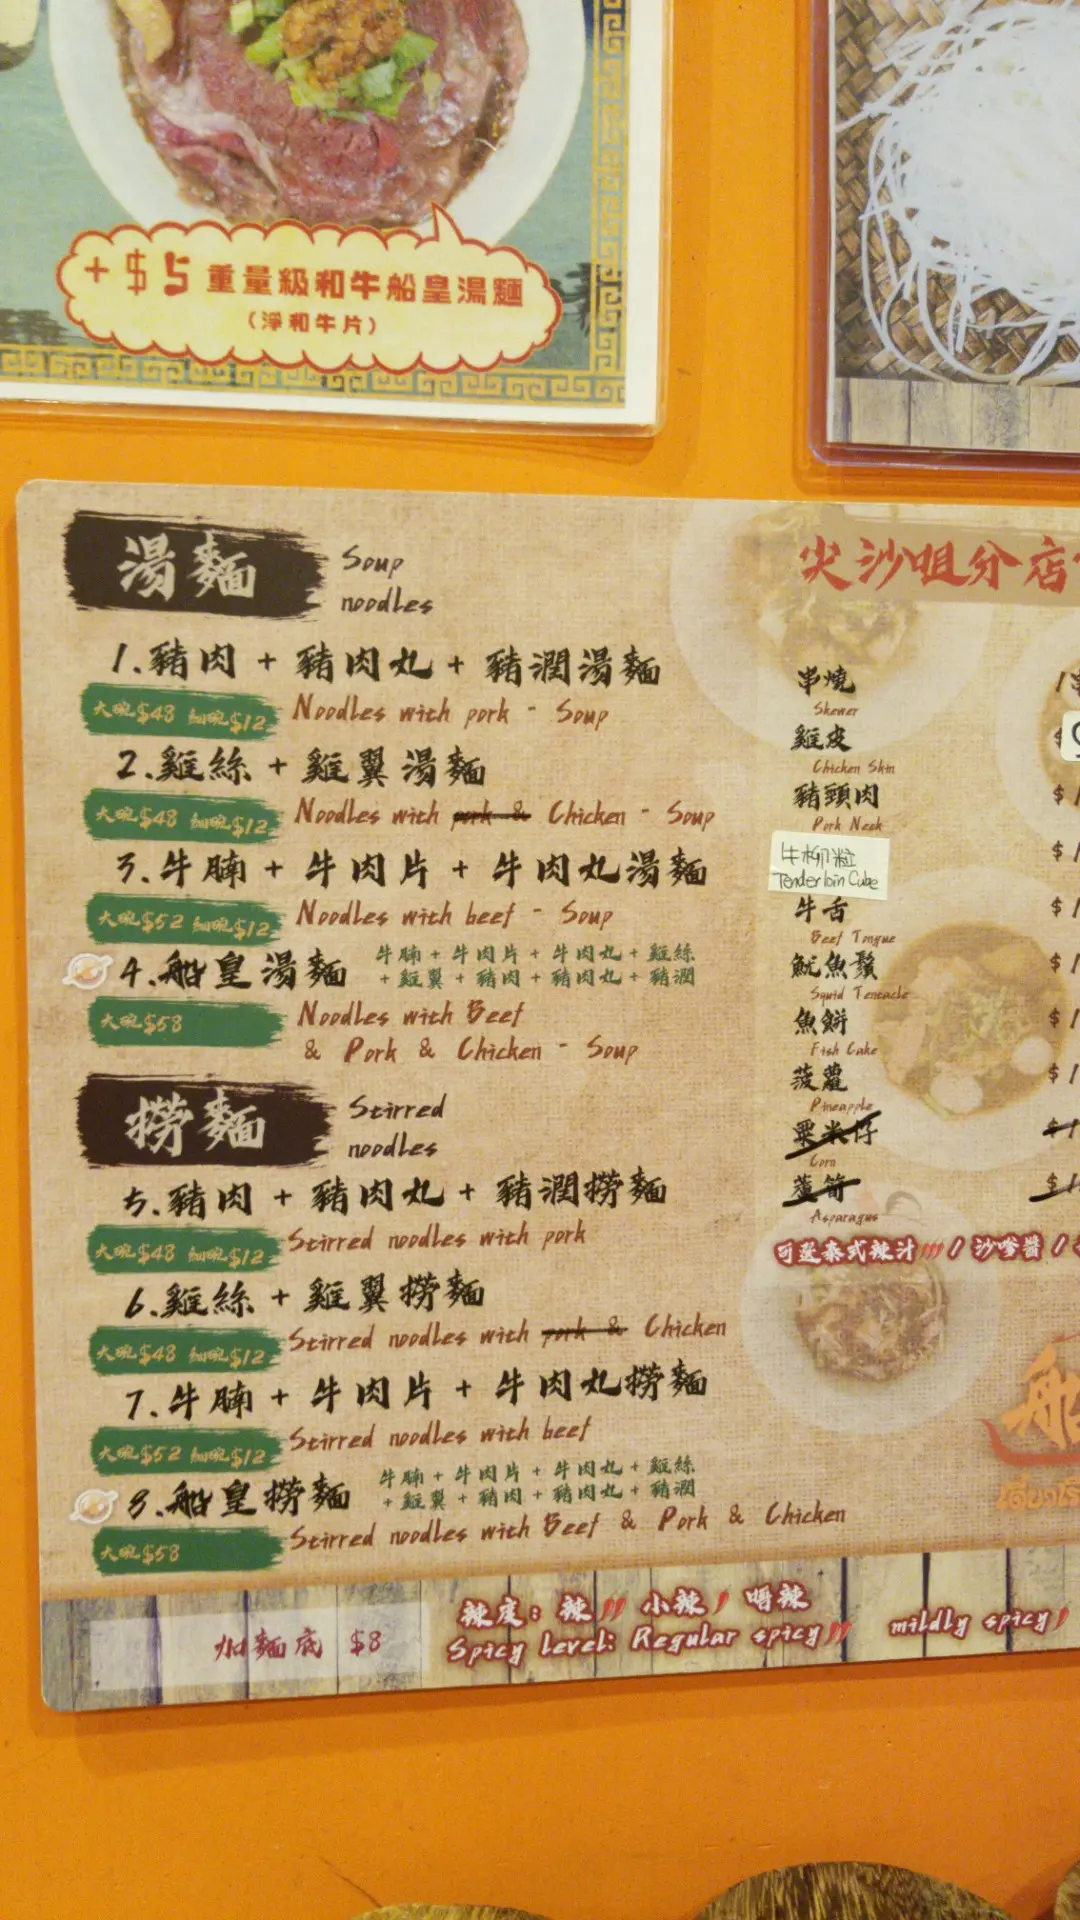 +$5 重量級和牛船皇湯麵
(淨和牛片)
湯麵 Soup
noodles
1.豬肉 + 豬肉丸 + 豬潤湯麵
大碗$48 細碗$12 Noodles with pork - Soup
2.雞絲 + 雞翼湯麵
大碗$48 細碗$12 Noodles with pork & Chicken - Soup
3.牛腩 + 牛肉片 + 牛肉丸湯麵
大碗$52 細碗$12 Noodles with beef - Soup
4.船皇湯麵 牛腩 + 牛肉片 + 牛肉丸 + 雞絲
+ 雞翼 + 豬肉 + 豬肉丸 + 豬潤
大碗$58 Noodles with Beef
& Pork & Chicken - Soup
撈麵 Stirred
noodles
5.豬肉 + 豬肉丸 + 豬潤撈麵
大碗$48 細碗$12 Stirred noodles with pork
6.雞絲 + 雞翼撈麵
大碗$48 細碗$12 Stirred noodles with pork & Chicken
7.牛腩 + 牛肉片 + 牛肉丸撈麵
大碗$52 細碗$12 Stirred noodles with beef
8.船皇撈麵 牛腩 + 牛肉片 + 牛肉丸 + 雞絲
+ 雞翼 + 豬肉 + 豬肉丸 + 豬潤
大碗$58 Stirred noodles with Beef & Pork & Chicken
尖沙咀分店
串燒
Skewer
雞皮
Chicken Skin
豬頸肉
Pork Neck
牛柳粒
Tenderloin Cube
牛舌
Beef Tongue
魷魚鬚
Squid Tentacle
魚餅
Fish Cake
菠蘿
Pineapple
粟米仔
Corn
蘆筍
Asparagus
可選泰式辣汁 / 沙嗲醬 /
加麵底 $8
辣度: 辣 小辣 唔辣
Spicy Level: Regular spicy mildly spicy